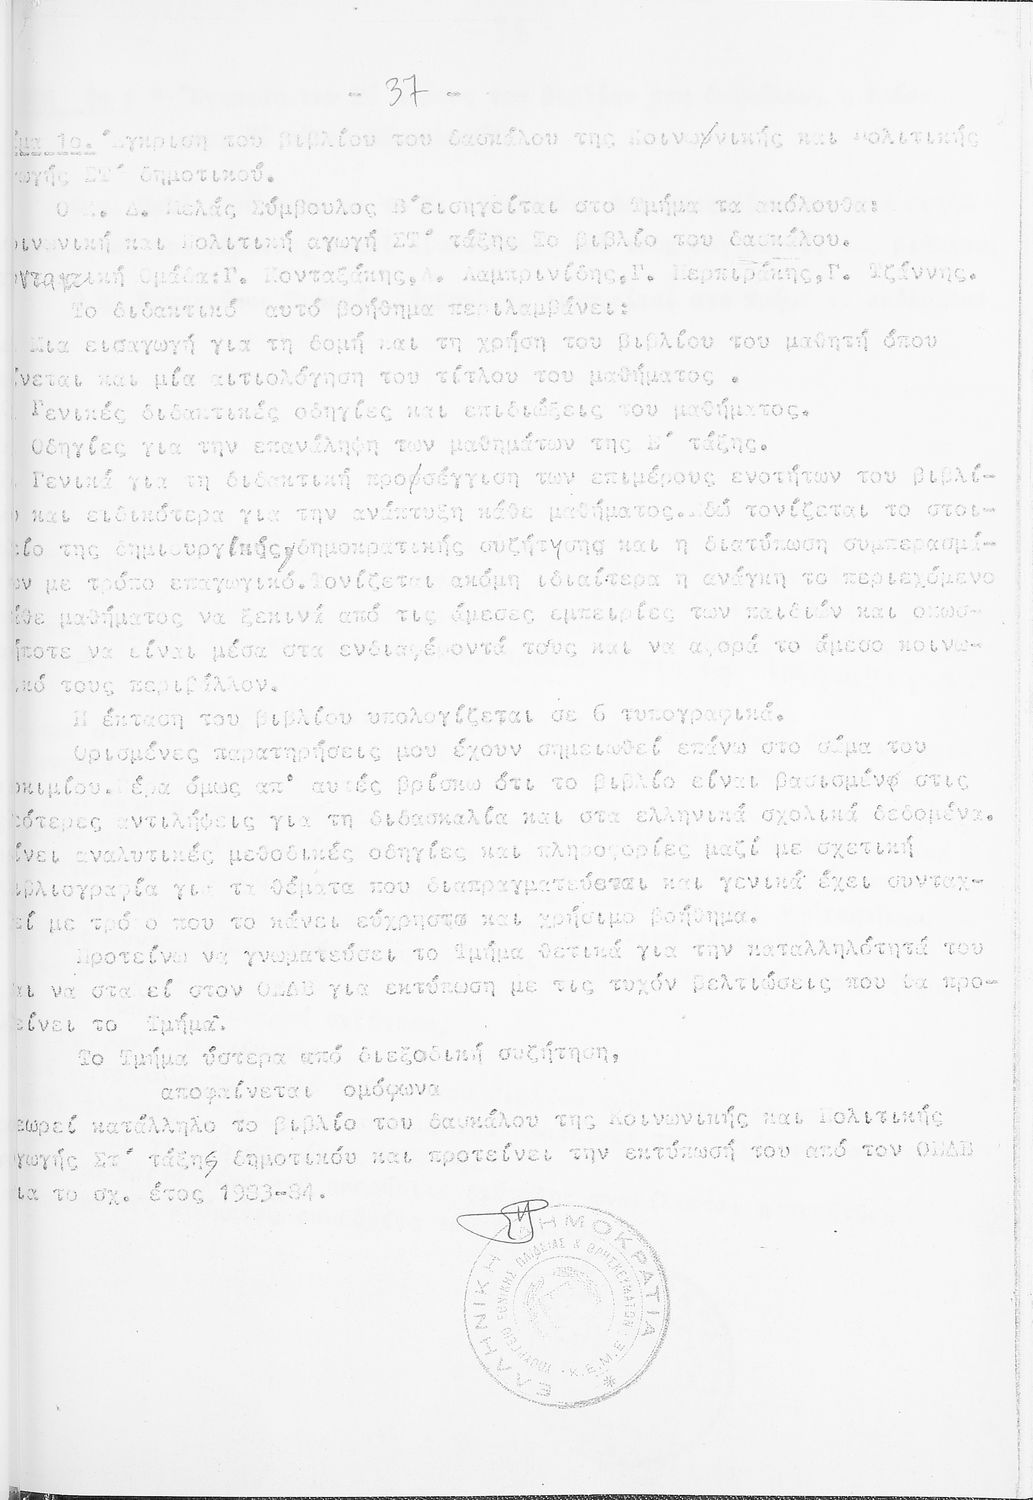 - 37 -
μα 1ο. Έγκριση του βιβλίου του δασκάλου της Κοινωνικής και Πολιτικής
ωγής ΣΤ΄ δημοτικού.
Ο κ. Δ. Μελάς Σύμβουλος Β΄εισηγείται στο Τμήμα τα ακόλουθα:
οινωνική και Πολιτική αγωγή ΣΤ΄ τάξης Το βιβλίο του δασκάλου.
Ομάδα:Γ. Κονταξάκης,Α. Λαμπρινίδης,Γ. Μερκιράκης,Γ. Τζάννης.
Το διδακτικό αυτό βοήθημα περιλαμβάνει:
Μια εισαγωγή για τη δομή και τη χρήση του βιβλίου του μαθητή όπου
ίνεται και μία αιτιολόγηση του τίτλου του μαθήματος .
Γενικές διδακτικές οδηγίες και επιδιώξεις του μαθήματος.
Οδηγίες για την επανάληψη των μαθημάτων της Ε΄ τάξης.
Γενικά για τη διδακτική προσέγγιση των επιμέρους ενοτήτων του βιβλί-
υ και ειδικότερα για την ανάπτυξη κάθε μαθήματος.Εδώ τονίζεται το στοι-
ίο της δημιουργικής,δημοκρατικής συζήτησης και η διατύπωση συμπερασμά-
ων με τρόπο επαγωγικό.Τονίζεται ακόμη ιδιαίτερα η ανάγκη το περιεχόμενο
άθε μαθήματος να ξεκινά από τις άμεσες εμπειρίες των παιδιών και οπωσ-
ήποτε να είναι μέσα στα ενδιαφέροντά τους και να αφορά το άμεσο κοινω-
ικό τους περιβάλλον.
Η έκταση του βιβλίου υπολογίζεται σε 6 τυπογραφικά.
Ορισμένες παρατηρήσεις μου έχουν σημειωθεί επάνω στο σώμα του
οκιμίου.Πέρα όμως απ' αυτές βρίσκω ότι το βιβλίο είναι βασισμένο στις
ότερες αντιλήψεις για τη διδασκαλία και στα ελληνικά σχολικά δεδομένα.
ίνει αναλυτικές μεθοδικές οδηγίες και πληροφορίες μαζί με σχετική
ιβλιογραφία για τα θέματα που διαπραγματεύεται και γενικά έχει συνταχ-
εί με τρό ο που το κάνει εύχρηστο και χρήσιμο βοήθημα.
Προτείνω να γνωματεύσει το Τμήμα θετικά για την καταλληλότητά του
αι να στα εί στον ΟΕΔΒ για εκτύπωση με τις τυχόν βελτιώσεις που θα προ-
είνει το Τμήμα.
Το Τμήμα ύστερα από διεξοδική συζήτηση,
αποφαίνεται ομόφωνα
εωρεί κατάλληλο το βιβλίο του δασκάλου της Κοινωνικής και Πολιτικής
γωγής Στ΄ τάξης δημοτικόυ και προτείνει την εκτύπωσή του από τον ΟΕΔΒ
ια το σχ. έτος 1983-84.
ΕΛΛΗΝΙΚΗ ΔΗΜΟΚΡΑΤΙΑ
ΥΠΟΥΡΓΕΙΟ ΕΘΝΙΚΗΣ ΠΑΙΔΕΙΑΣ & ΘΡΗΣΚΕΥΜΑΤΩΝ - Κ.Ε.Μ.Ε.